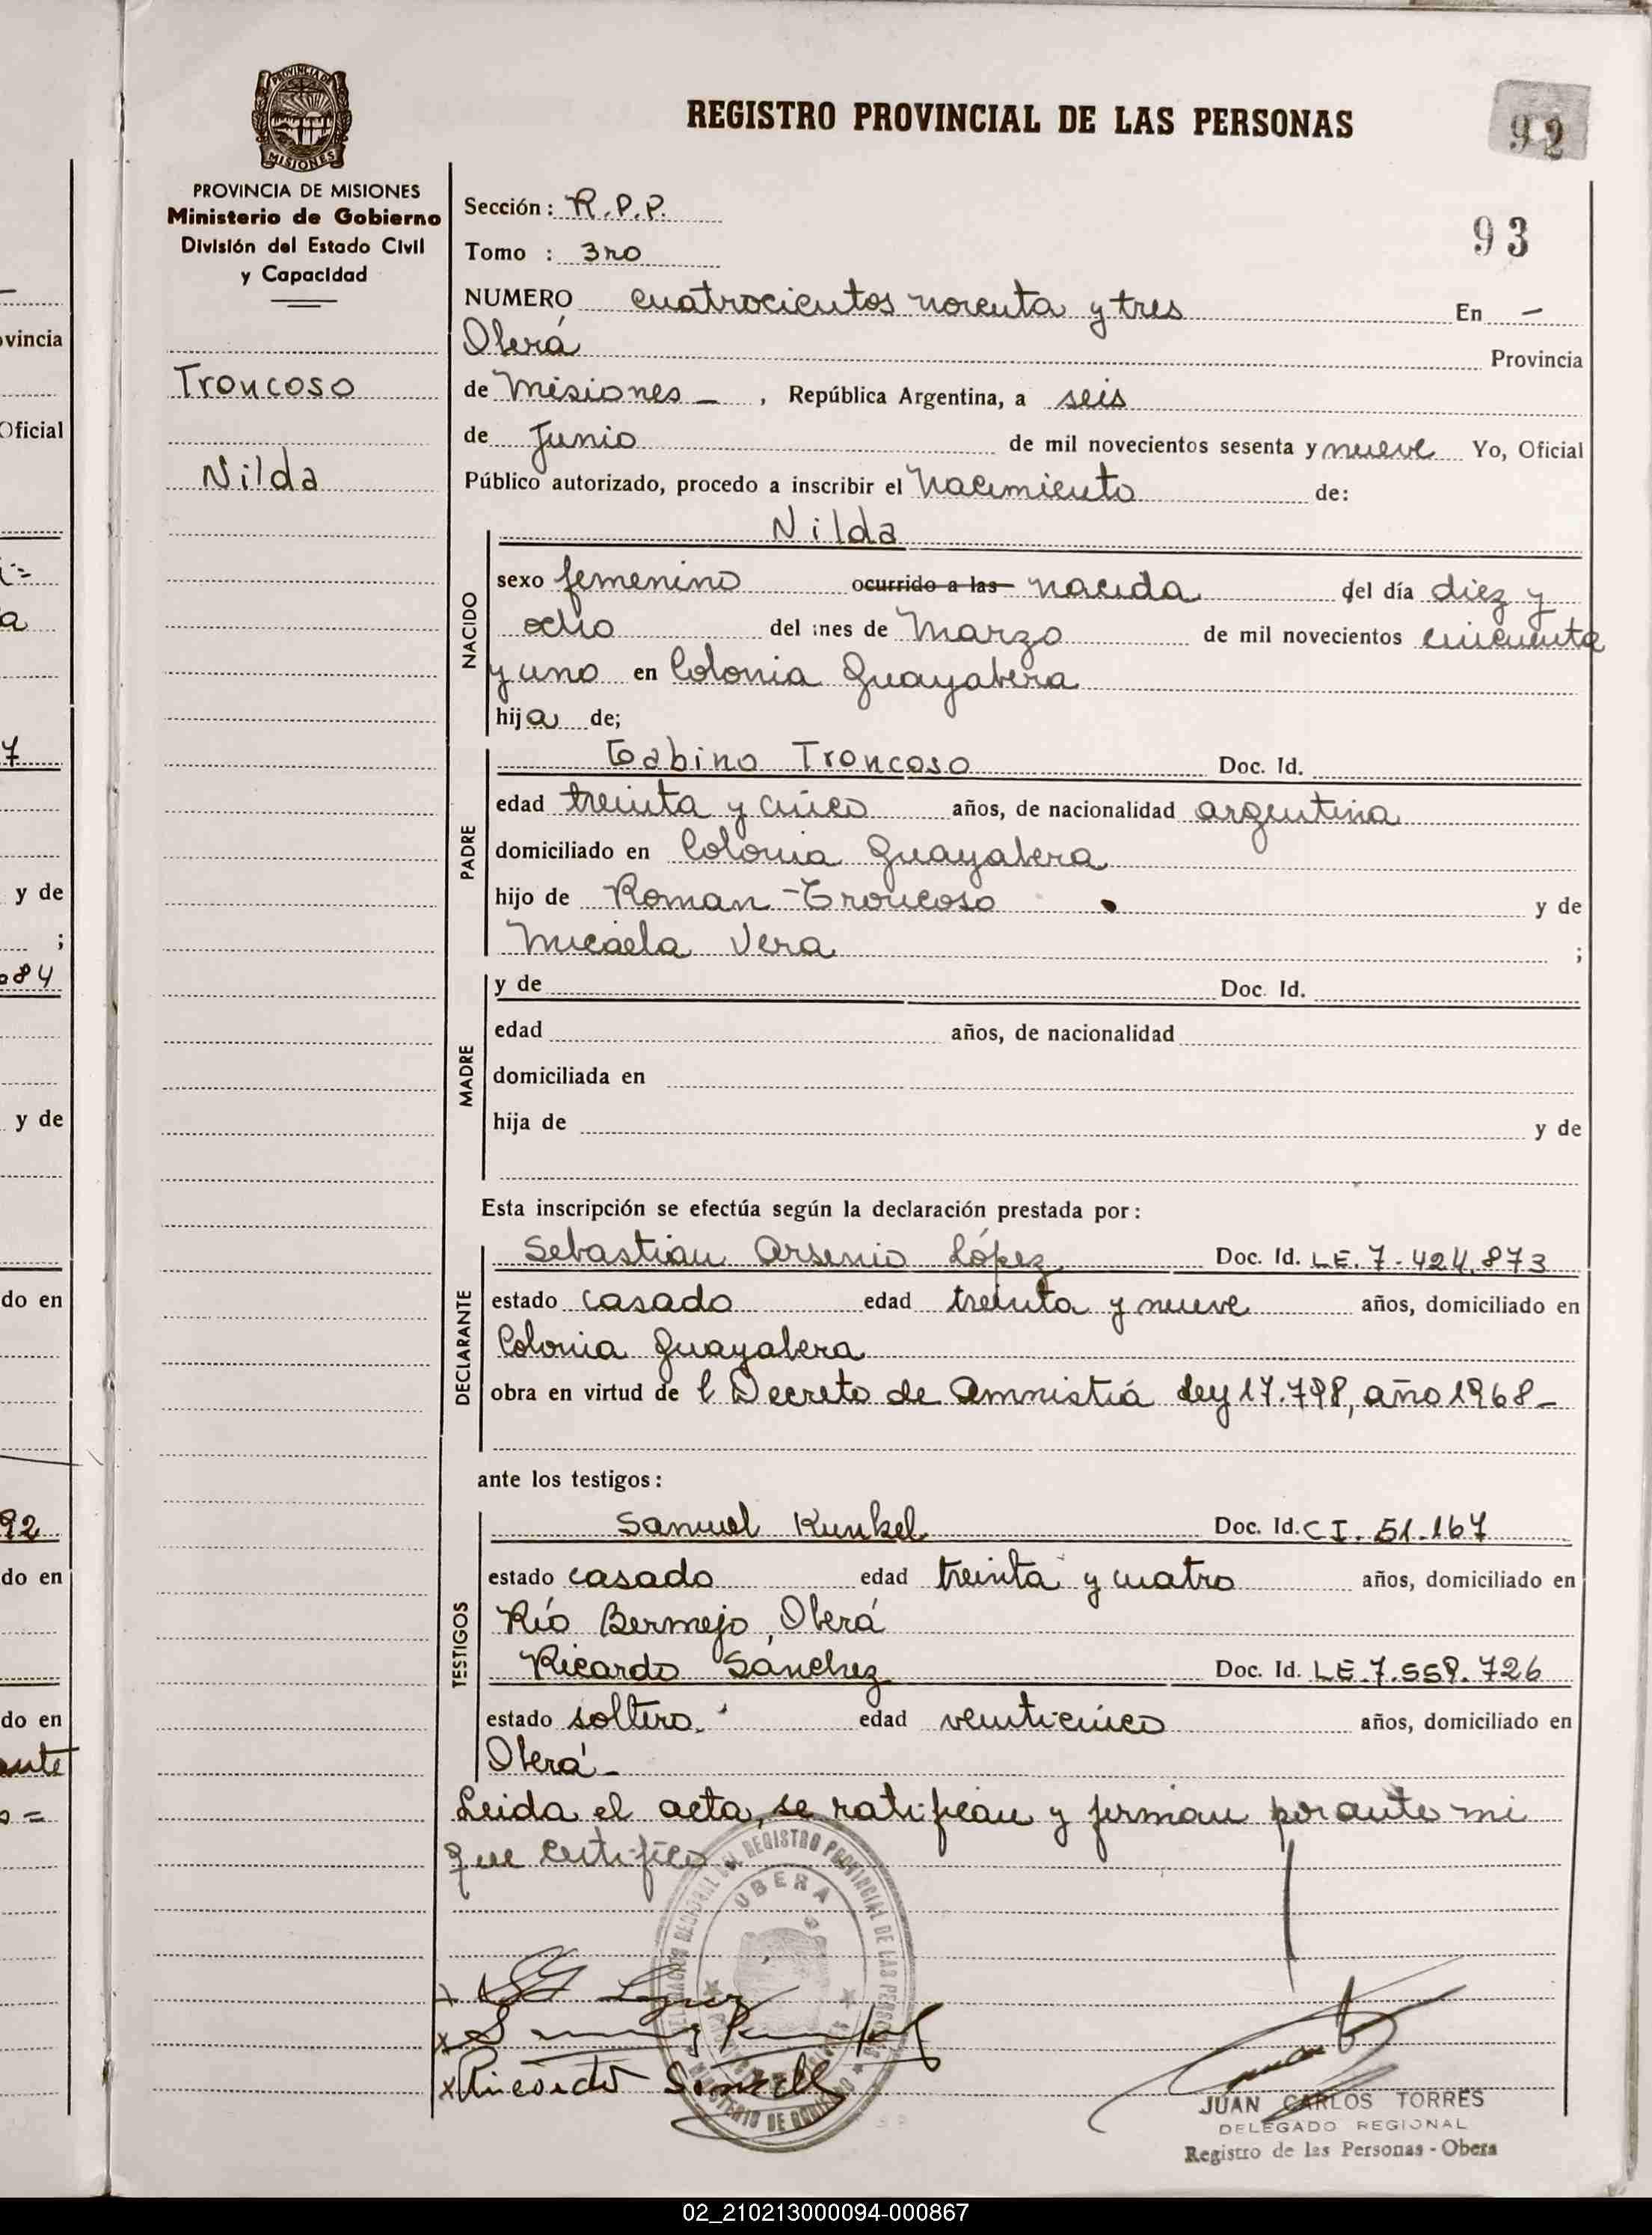 REGISTRO PROVINCIAL DE LAS PERSONAS
92
PROVINCIA DE MISIONES
Ministerio de Gobierno
División del Estado Civil
y Capacidad
Troncoso
Nilda
Sección: R.P.P.
93
Tomo : 3ro
NUMERO cuatrocientos noventa y tres En —
Oberá Provincia
de Misiones — , República Argentina, a seis
de Junio de mil novecientos sesenta y nueve Yo, Oficial
Público autorizado, procedo a inscribir el Nacimiento de:
NACIDO
Nilda
sexo femenino ocurrido a las nacida del día diez y
ocho del mes de Marzo de mil novecientos cincuenta
y uno en Colonia Guayabera
hija de;
PADRE
Gabino Troncoso Doc. Id.
edad treinta y cinco años, de nacionalidad argentina
domiciliado en Colonia Guayabera
hijo de Roman Troncoso y de
Micaela Vera ;
MADRE
y de Doc. Id.
edad años, de nacionalidad
domiciliada en
hija de y de
Esta inscripción se efectúa según la declaración prestada por:
DECLARANTE
Sebastian Arsenio López Doc. Id. LE. 7.424.873
estado casado edad treinta y nueve años, domiciliado en
Colonia Guayabera
obra en virtud de l Decreto de Amnistiá Ley 17.798, año 1968—
ante los testigos:
TESTIGOS
Samuel Kunkel Doc. Id. C I. 51.167
estado casado edad treinta y cuatro años, domiciliado en
Río Bermejo, Oberá
Ricardo Sánchez Doc. Id. LE. 7.559.726
estado soltero. edad venticinco años, domiciliado en
Oberá—
Leida el acta, se ratifican y firman por ante mi
que certifico
OBERA
JUAN CARLOS TORRES
DELEGADO REGIONAL
Registro de las Personas - Obera
vincia
Oficial
y de
;
y de
do en
92
do en
do en
ante
02_210213000094-000867